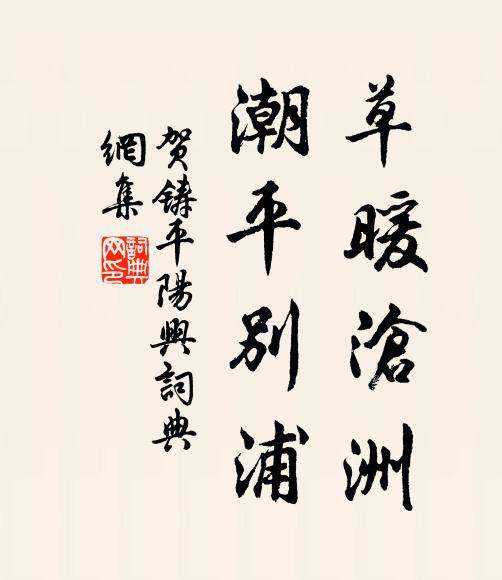 草暖滄洲
潮平別浦
賀鑄平陽興詞典
網集
詞典
网印